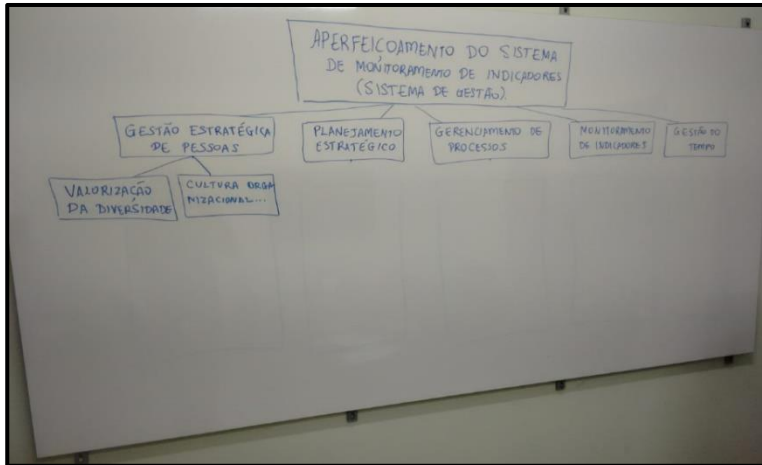 APERFEICOAMENTO DO SISTEMA
DE MONITORAMENTO DE INDICADORES
(SISTEMA DE GESTÃO).
GESTÃO ESTRATÉGICA
DE PESSOAS
PLANEJAMENTO
ESTRATÉGICO
GERENCIAMENTO DE
PROCESSOS
MONITORAMENTO
DE INDICADORES
GESTÃO DO
TEMPO
VALORIZAÇÃO
DA DIVERSIDADE
CULTURA ORGA
NIZACIONAL...